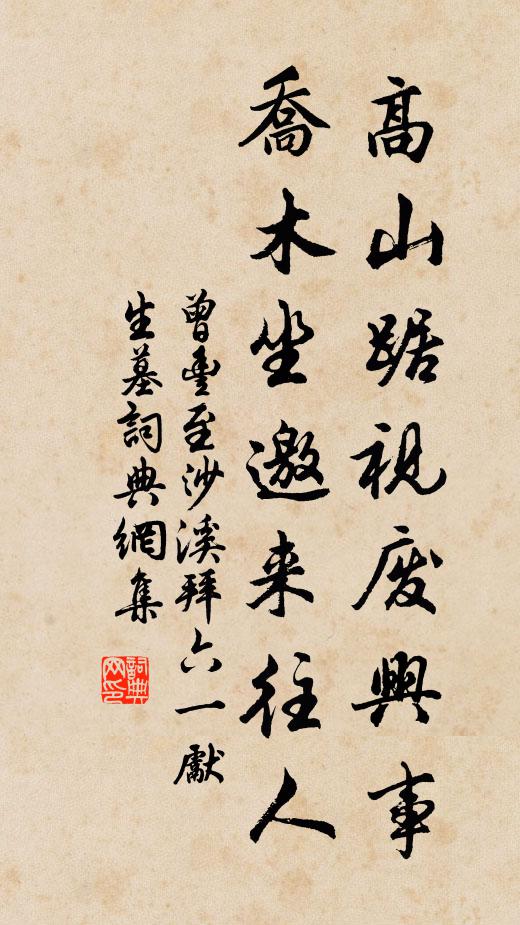 高山踞視废興事
喬木坐邀来往人
曾豐至沙溪拜六一獻
生墓詞典網集
詞典网印